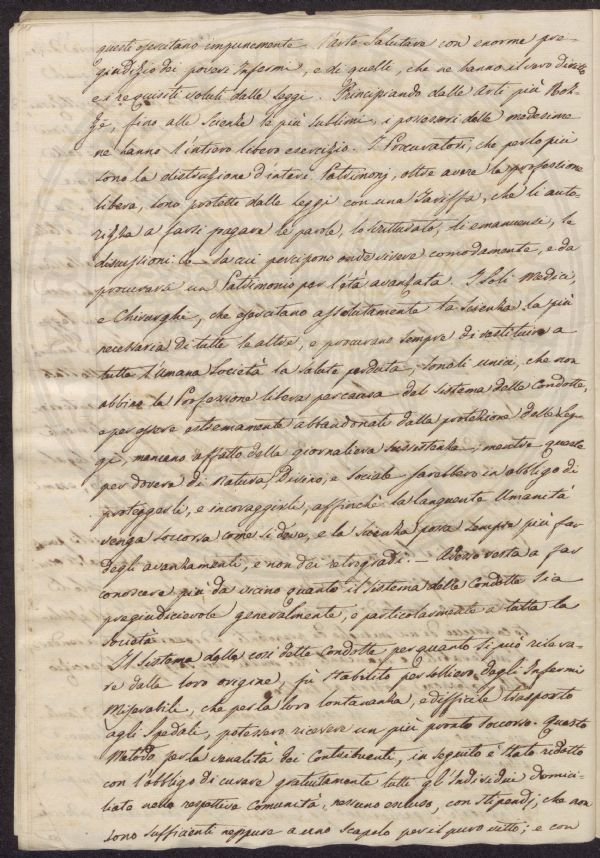 questi esercitano impunemente l'arte Salutare con enorme pre-
giudizio dei poveri Infermi, e di quelli, che ne hanno il vero diritto
e i requisiti voluti dalle Leggi. Principiando dalle Arti più Roz-
ze, fino alle Scienze le più sublimi, i possessori delle medesime
ne hanno l'intiero libero esercizio. I Procuratori, che per lo più
sono la distruzione d'interi Patrimonj, oltre avere la professione
libera, sono protetti dalle Leggi con una Tariffa, che li auto-
rizza a farsi pagare le parole, lo stritturato, li emanuensi, le
discussioni da cui percipono onde vivere comodamente, e da
procurarsi un Patrimonio per l'età avanzata. I Soli Medici,
e Chirurghi, che esercitano assolutamente la Scienza la più
necessaria di tutte le altre, e procurano sempre di restituire a
tutta l'Umana Società la salute perduta, sono li unici, che non
abbino la Professione libera per causa del Sistema delle Condotte,
e per essere estremamente abbandonati dalla protezione delle Leg-
gi, mancano affatto della giornaliera sussistenza, mentre queste
per dovere di Natura, Divino, e Sociale sarebbero in obbligo di
proteggerli, e incoraggirli, affinchè la languente Umanità
venga soccorsa come si deve, e la Scienza possa sempre più far
degli avanzamenti, e non dei retrogradi. — Adesso resta a far
conoscere più da vicino quanto il Sistema delle Condotte sia
pregiudicievole generalmente, e particolarmente a tutta la
Società
Il Sistema delle così dette Condotte per quanto si può rileva-
re dalla loro origine, fù stabilito per sollievo degli Infermi
Miserabili, che per la loro lontananza, e difficile trasporto
agli Spedali, potessero ricevere un più pronto soccorso. Questo
Metodo per la venalità dei Contribuenti, in seguito è stato ridotto
con l'obbligo di curare gratuitamente tutti gl'Individui domici-
liati nella respettiva Comunità, nessuno escluso, con stipendj, che non
sono sufficienti neppure a uno Scapolo per il puro vitto; e con